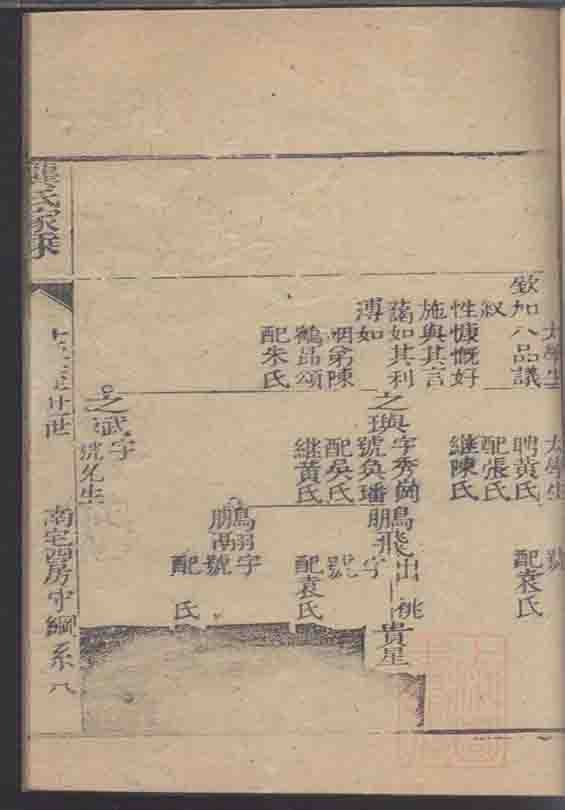 太學生
欽加八品議
叙
性慷慨好
施與其言
藹如其利
溥如
姻弟陳
鶴昂頌
配朱氏
太學生
聘黃氏
配張氏
繼陳氏
之璵字秀崗
號奐璠
配吳氏
繼黃氏
之斌字
號允生
號
配袁氏
鵬飛出祧
字
號
配袁氏
鵬翮字
號
配 氏
貴星
龔氏家乘
廿世
南宅西房守綱系
八